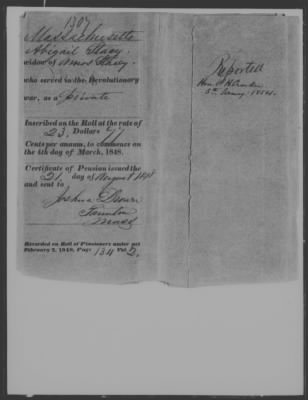 1307
Massachusetts
Abigail Stacy
widow of Amos Stacy
who served in the Revolutionary
war, as a Private
Inscribed on the Roll at the rate of
23 Dollars 77
Cents per annum, to commence on
the 4th day of March, 1848.
Certificate of Pension issued the
21 day of August 1848
and sent to
Joshua Brown
Taunton
Mass
Recorded on Roll of Pensioners under act
February 2, 1848, Page 134 Vol 2.
Reported
Hon.
5th 1854.